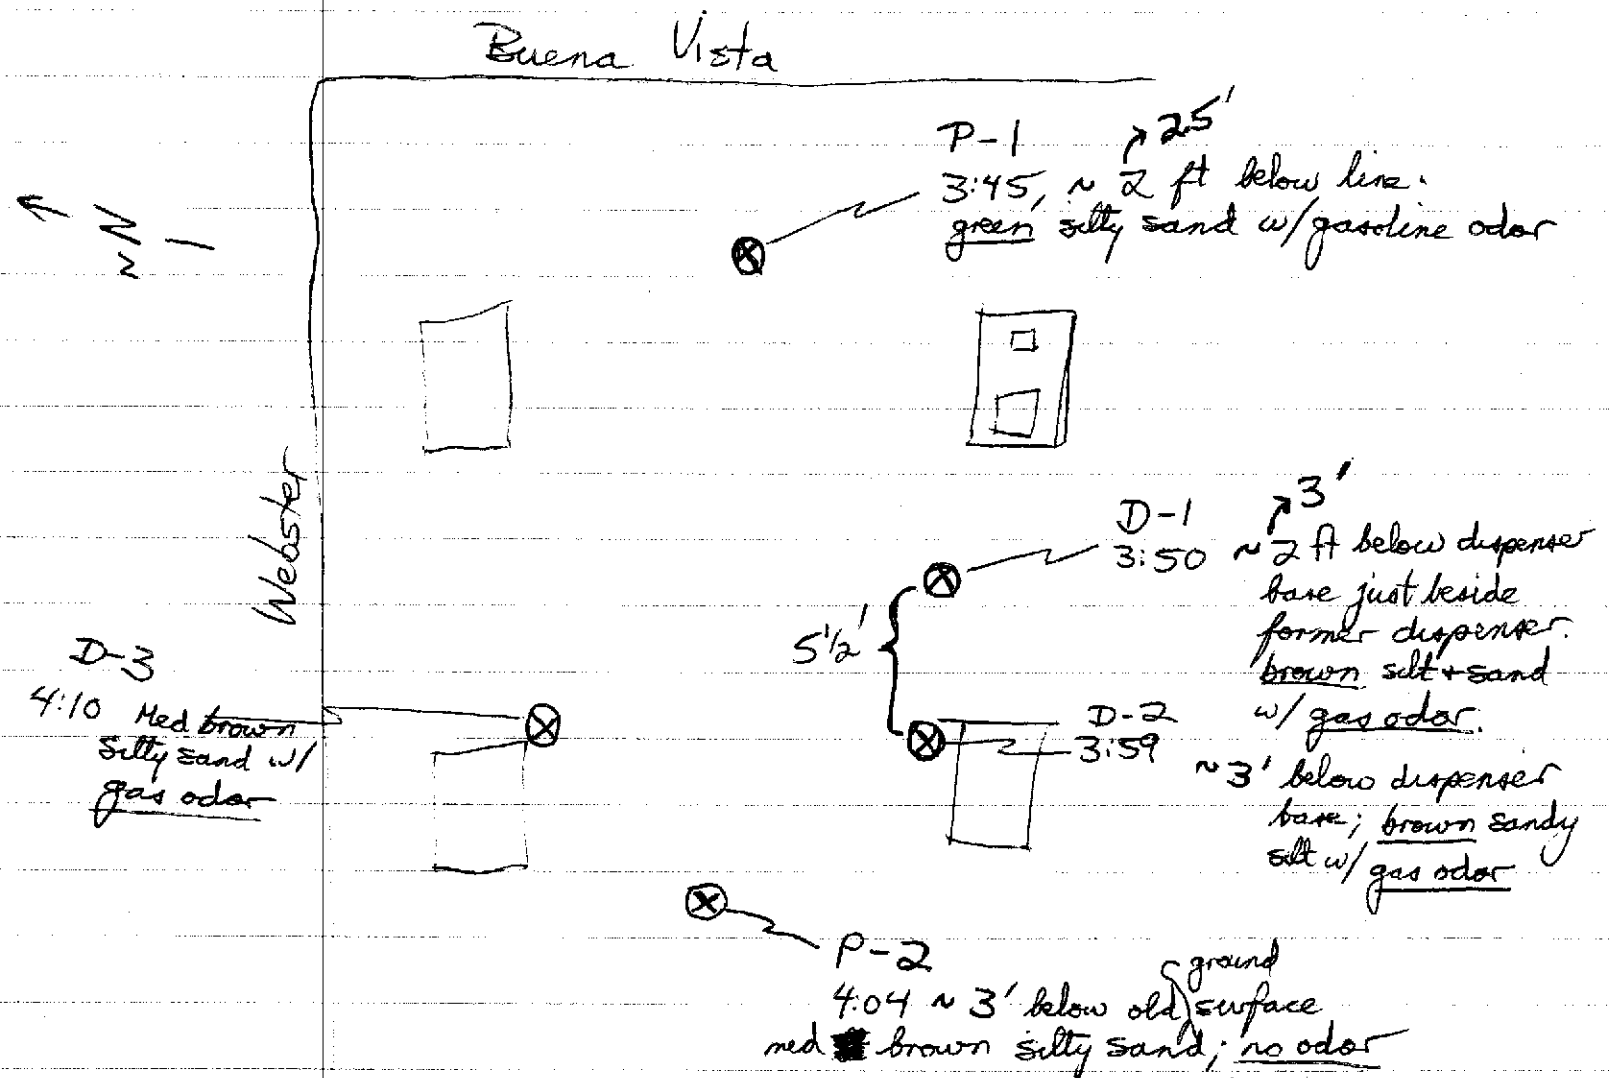 Buena Vista
N
P-1
2.5'
3:45, ~ 2 ft below line.
green silty sand w/gasoline odor
Webster
D-1
3'
3:50 ~ 2 ft below dispenser
base just beside
former dispenser.
brown silt + sand
w/ gas odor.
5 1/2'
D-2
3:59
~3' below dispenser
base; brown sandy
silt w/ gas odor
D-3
4:10 Med brown
silty sand w/
gas odor
P-2
4:04 ~ 3' below old ground surface
med brown silty sand; no odor